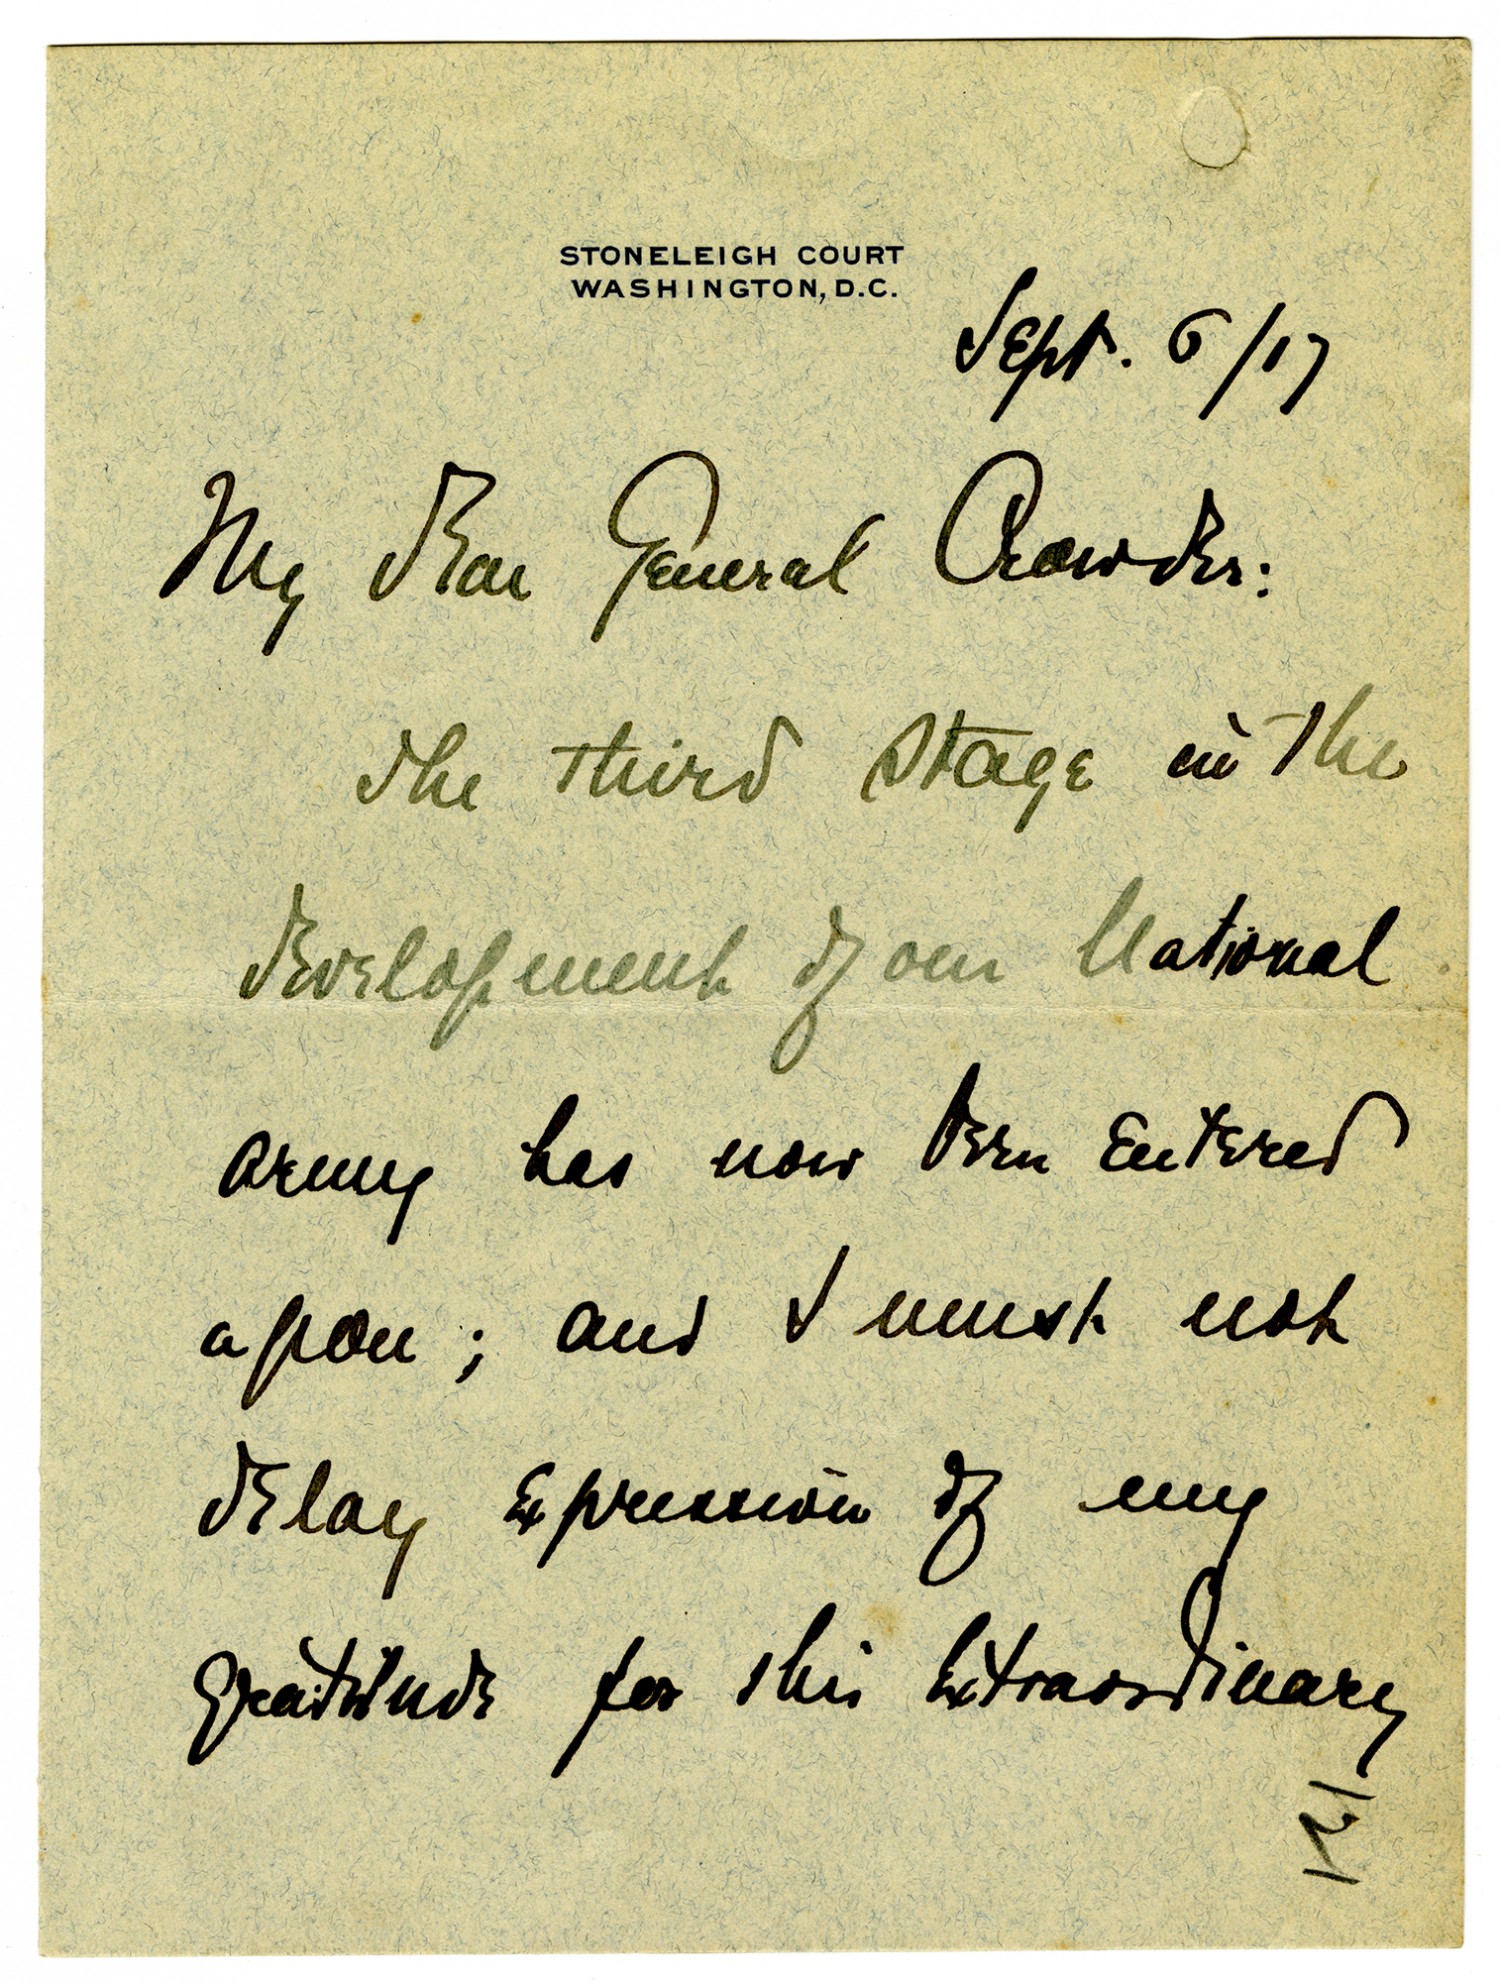 STONELEIGH COURT
WASHINGTON, D.C.
Sept. 6/17
My dear General Crowder:
The third stage in the
development of our National
army has now been entered
upon; and I must not
delay expression of my
gratitude for this extraordinary